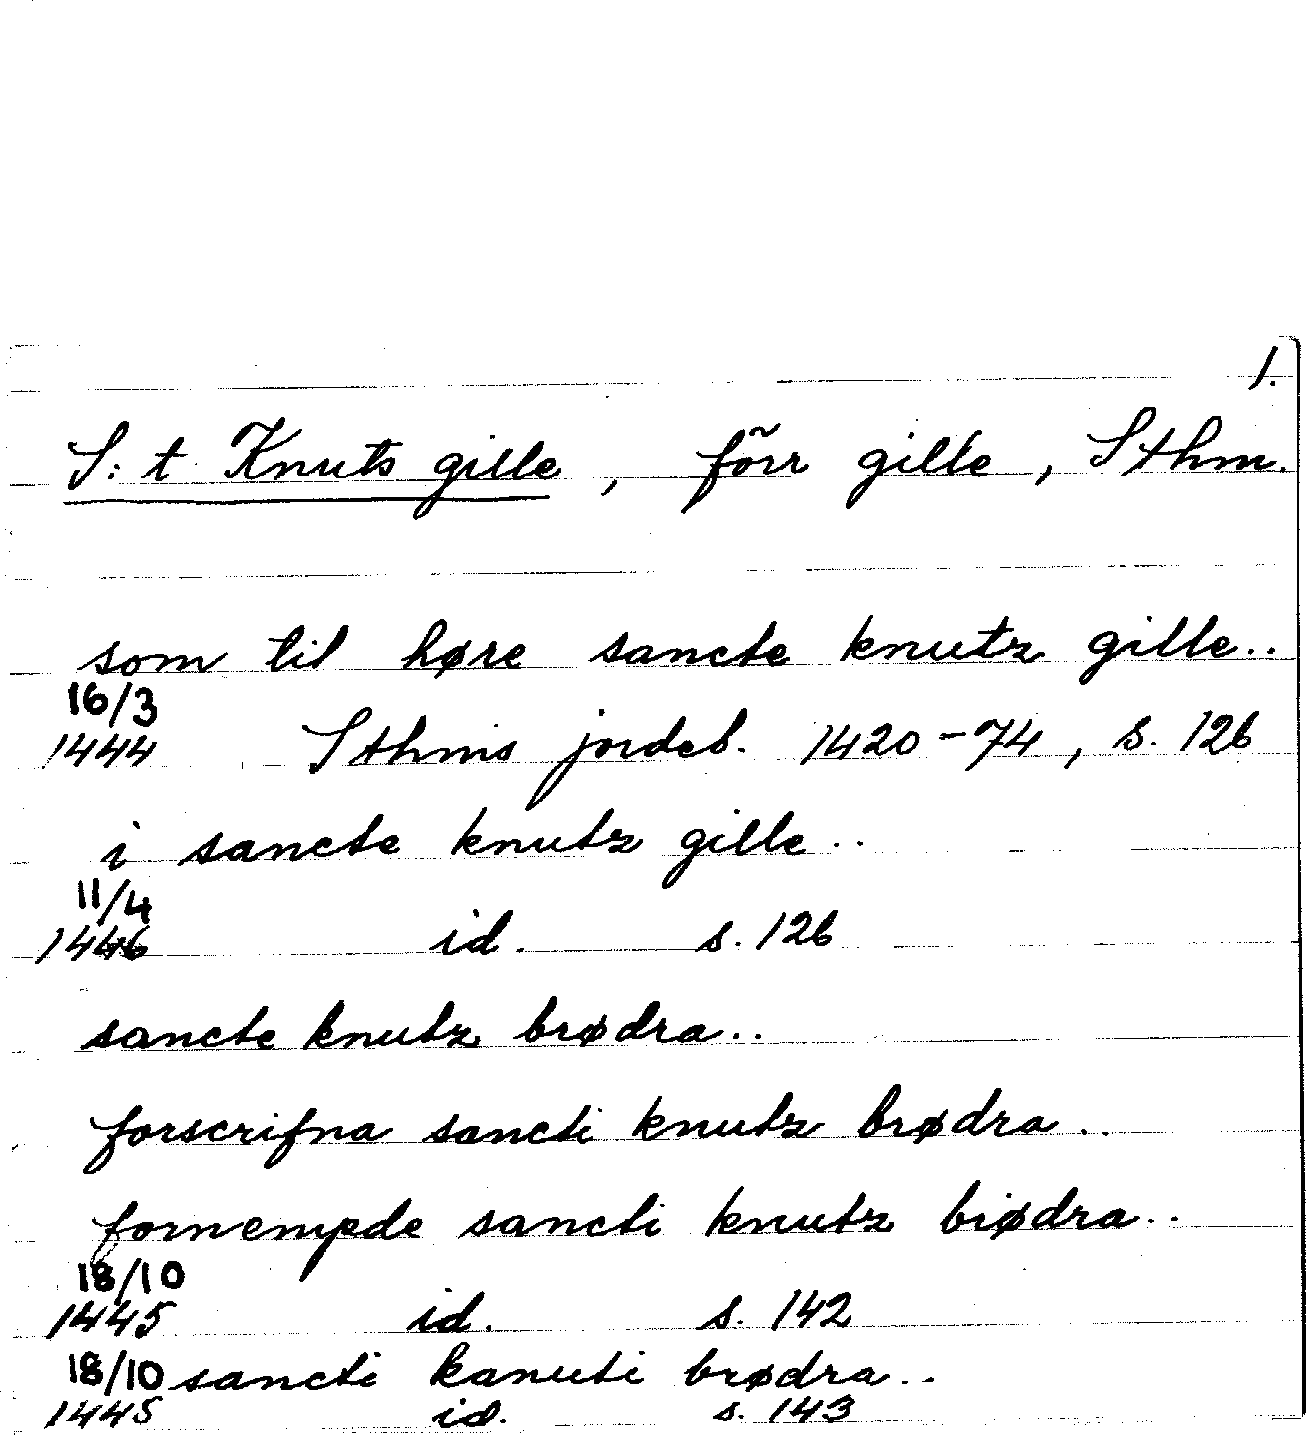 1.
S:t Knuts gille, förr gille, Sthm.
som til høre sancte knutz gille..
16/3
1444 Sthms jordeb. 1420-74, s. 126
i sancte knutz gille..
11/4
1446 id. s. 126
sancte knutz brødra..
forscrifna sancti knutz brødra..
fornempde sancti knutz brødra..
18/10
1445 id. s. 142
18/10 sancti kanuti brødra..
1445 id. s. 143